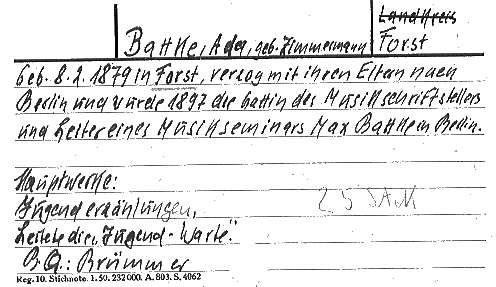 Landkreis
Battke, Ada, geb. Zimmermann Forst
Geb. 8.2.1879 in Forst, verzog mit ihren Eltern nach
Berlin und wurde 1897 die Gattin des Musikschriftstellers
und Leiter eines Musikseminars Max Battke in Berlin.
Hauptwerke:
Jugenderzählungen,
Leitete die „Jugend-Warte“.
B.Q.: Brümmer
Reg. 10. Stichnote. 1. 50. 232000. A. 803. S. 4062